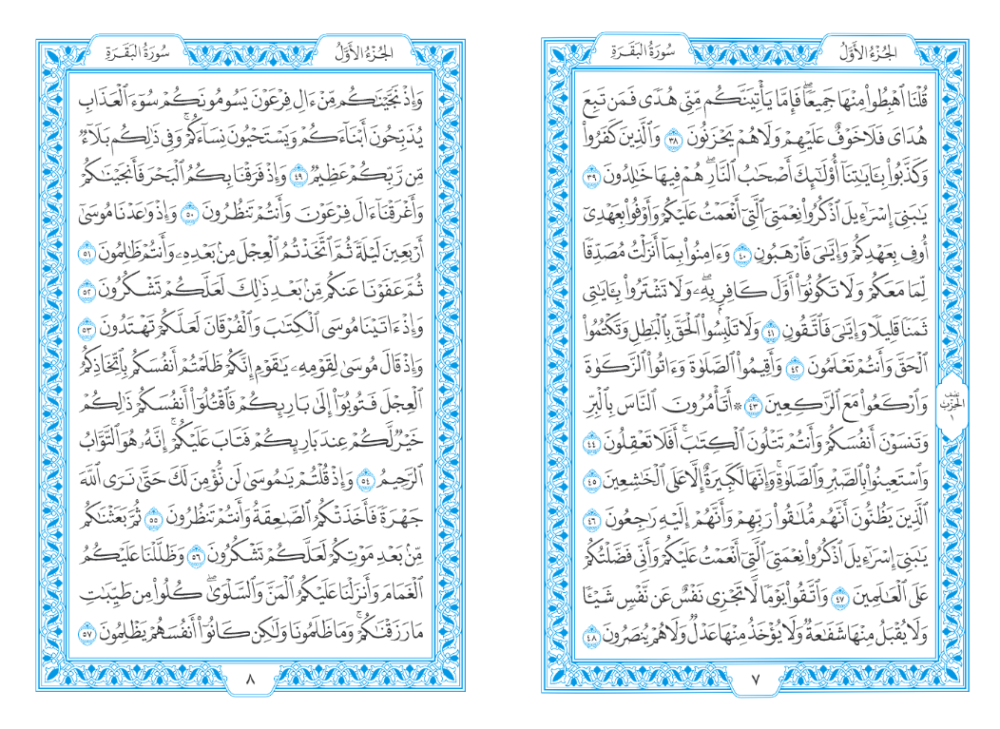 الجُزْءُ الأَوَّلُ
سُورَةُ البَقَرَةِ
قُلْنَا ٱهْبِطُوا۟ مِنْهَا جَمِيعًۭا ۖ فَإِمَّا يَأْتِيَنَّكُم مِّنِّى هُدًۭى فَمَن تَبِعَ
هُدَاىَ فَلَا خَوْفٌ عَلَيْهِمْ وَلَا هُمْ يَحْزَنُونَ ٣٨ وَٱلَّذِينَ كَفَرُوا۟
وَكَذَّبُوا۟ بِـَٔايَـٰتِنَآ أُو۟لَـٰٓئِكَ أَصْحَـٰبُ ٱلنَّارِ ۖ هُمْ فِيهَا خَـٰلِدُونَ ٣٩
يَـٰبَنِىٓ إِسْرَٰٓءِيلَ ٱذْكُرُوا۟ نِعْمَتِىَ ٱلَّتِىٓ أَنْعَمْتُ عَلَيْكُمْ وَأَوْفُوا۟ بِعَهْدِىٓ
أُوفِ بِعَهْدِكُمْ وَإِيَّـٰىَ فَٱرْهَبُونِ ٤٠ وَءَامِنُوا۟ بِمَآ أَنزَلْتُ مُصَدِّقًۭا
لِّمَا مَعَكُمْ وَلَا تَكُونُوٓا۟ أَوَّلَ كَافِرٍۭ بِهِۦ ۖ وَلَا تَشْتَرُوا۟ بِـَٔايَـٰتِى
ثَمَنًۭا قَلِيلًۭا وَإِيَّـٰىَ فَٱتَّقُونِ ٤١ وَلَا تَلْبِسُوا۟ ٱلْحَقَّ بِٱلْبَـٰطِلِ وَتَكْتُمُوا۟
ٱلْحَقَّ وَأَنتُمْ تَعْلَمُونَ ٤٢ وَأَقِيمُوا۟ ٱلصَّلَوٰةَ وَءَاتُوا۟ ٱلزَّكَوٰةَ
وَٱرْكَعُوا۟ مَعَ ٱلرَّٰكِعِينَ ٤٣ ۞ أَتَأْمُرُونَ ٱلنَّاسَ بِٱلْبِرِّ
وَتَنسَوْنَ أَنفُسَكُمْ وَأَنتُمْ تَتْلُونَ ٱلْكِتَـٰبَ ۚ أَفَلَا تَعْقِلُونَ ٤٤
وَٱسْتَعِينُوا۟ بِٱلصَّبْرِ وَٱلصَّلَوٰةِ ۚ وَإِنَّهَا لَكَبِيرَةٌ إِلَّا عَلَى ٱلْخَـٰشِعِينَ ٤٥
ٱلَّذِينَ يَظُنُّونَ أَنَّهُم مُّلَـٰقُوا۟ رَبِّهِمْ وَأَنَّهُمْ إِلَيْهِ رَٰجِعُونَ ٤٦
يَـٰبَنِىٓ إِسْرَٰٓءِيلَ ٱذْكُرُوا۟ نِعْمَتِىَ ٱلَّتِىٓ أَنْعَمْتُ عَلَيْكُمْ وَأَنِّى فَضَّلْتُكُمْ
عَلَى ٱلْعَـٰلَمِينَ ٤٧ وَٱتَّقُوا۟ يَوْمًۭا لَّا تَجْزِى نَفْسٌ عَن نَّفْسٍۢ شَيْـًۭٔا
وَلَا يُقْبَلُ مِنْهَا شَفَـٰعَةٌۭ وَلَا يُؤْخَذُ مِنْهَا عَدْلٌۭ وَلَا هُمْ يُنصَرُونَ ٤٨
نِصْف
الحِزْب
١
٧
الجُزْءُ الأَوَّلُ
سُورَةُ البَقَرَةِ
وَإِذْ نَجَّيْنَـٰكُم مِّنْ ءَالِ فِرْعَوْنَ يَسُومُونَكُمْ سُوٓءَ ٱلْعَذَابِ
يُذَبِّحُونَ أَبْنَآءَكُمْ وَيَسْتَحْيُونَ نِسَآءَكُمْ ۚ وَفِى ذَٰلِكُم بَلَآءٌۭ
مِّن رَّبِّكُمْ عَظِيمٌۭ ٤٩ وَإِذْ فَرَقْنَا بِكُمُ ٱلْبَحْرَ فَأَنجَيْنَـٰكُمْ
وَأَغْرَقْنَآ ءَالَ فِرْعَوْنَ وَأَنتُمْ تَنظُرُونَ ٥٠ وَإِذْ وَٰعَدْنَا مُوسَىٰٓ
أَرْبَعِينَ لَيْلَةًۭ ثُمَّ ٱتَّخَذْتُمُ ٱلْعِجْلَ مِنۢ بَعْدِهِۦ وَأَنتُمْ ظَـٰلِمُونَ ٥١
ثُمَّ عَفَوْنَا عَنكُم مِّنۢ بَعْدِ ذَٰلِكَ لَعَلَّكُمْ تَشْكُرُونَ ٥٢
وَإِذْ ءَاتَيْنَا مُوسَى ٱلْكِتَـٰبَ وَٱلْفُرْقَانَ لَعَلَّكُمْ تَهْتَدُونَ ٥٣
وَإِذْ قَالَ مُوسَىٰ لِقَوْمِهِۦ يَـٰقَوْمِ إِنَّكُمْ ظَلَمْتُمْ أَنفُسَكُم بِٱتِّخَاذِكُمُ
ٱلْعِجْلَ فَتُوبُوٓا۟ إِلَىٰ بَارِئِكُمْ فَٱقْتُلُوٓا۟ أَنفُسَكُمْ ذَٰلِكُمْ
خَيْرٌۭ لَّكُمْ عِندَ بَارِئِكُمْ فَتَابَ عَلَيْكُمْ ۚ إِنَّهُۥ هُوَ ٱلتَّوَّابُ
ٱلرَّحِيمُ ٥٤ وَإِذْ قُلْتُمْ يَـٰمُوسَىٰ لَن نُّؤْمِنَ لَكَ حَتَّىٰ نَرَى ٱللَّهَ
جَهْرَةًۭ فَأَخَذَتْكُمُ ٱلصَّـٰعِقَةُ وَأَنتُمْ تَنظُرُونَ ٥٥ ثُمَّ بَعَثْنَـٰكُم
مِّنۢ بَعْدِ مَوْتِكُمْ لَعَلَّكُمْ تَشْكُرُونَ ٥٦ وَظَلَّلْنَا عَلَيْكُمُ
ٱلْغَمَامَ وَأَنزَلْنَا عَلَيْكُمُ ٱلْمَنَّ وَٱلسَّلْوَىٰ ۖ كُلُوا۟ مِن طَيِّبَـٰتِ
مَا رَزَقْنَـٰكُمْ ۖ وَمَا ظَلَمُونَا وَلَـٰكِن كَانُوٓا۟ أَنفُسَهُمْ يَظْلِمُونَ ٥٧
٨